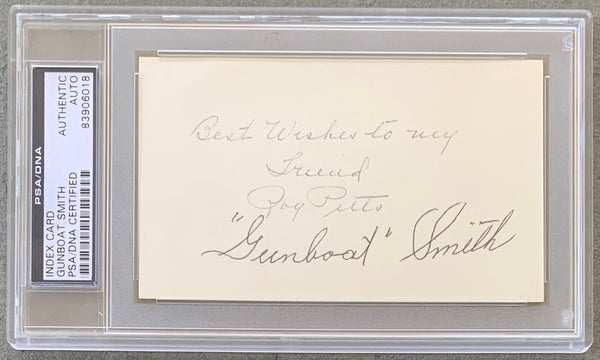 PSA/DNA
INDEX CARD
GUNBOAT SMITH
PSA/DNA CERTIFIED
AUTHENTIC
AUTO
83906018
Best Wishes to my
Friend
Roy Pitts
"Gunboat" Smith